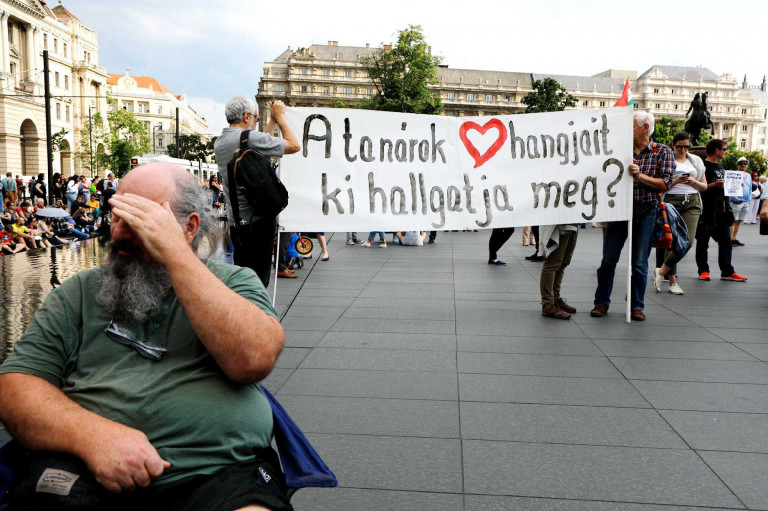 A tanárok ❤ hangjait
ki hallgatja meg?